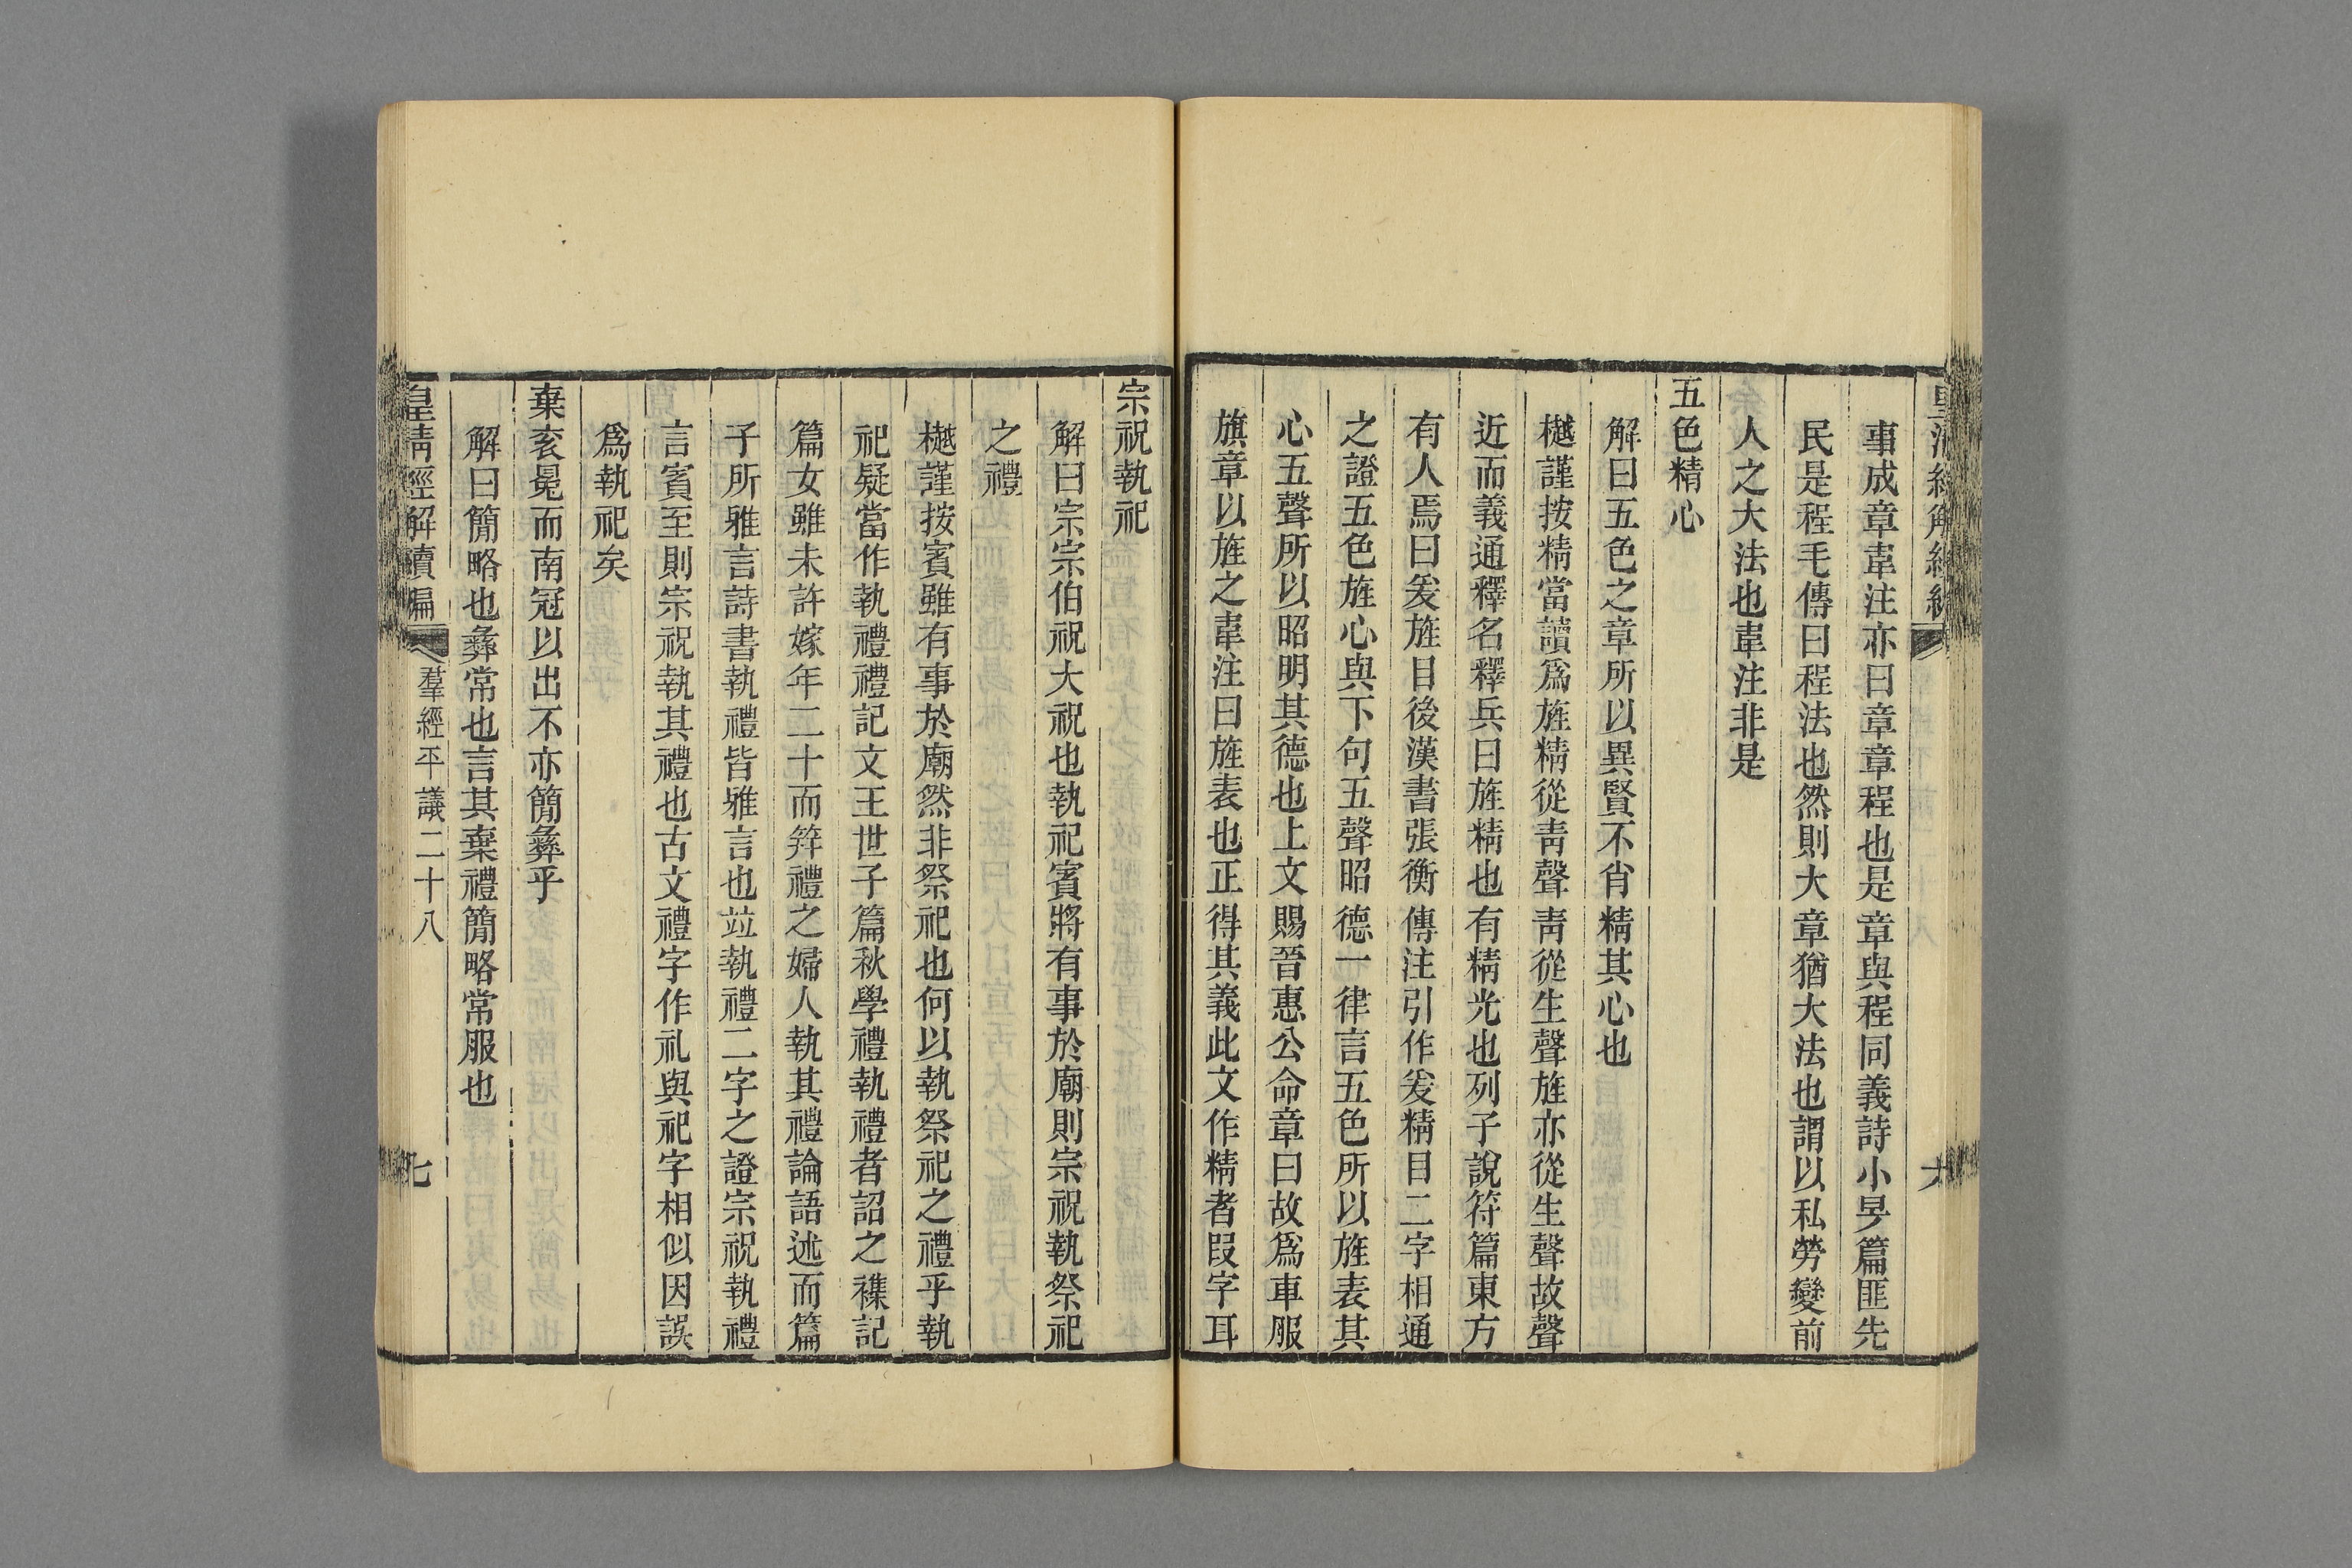 事成章韋注亦曰章章程也是章與程同義詩小旻篇匪先
民是程毛傳曰程法也然則大章猶大法也謂以私勞變前
人之大法也韋注非是
五色精心
解曰五色之章所以異賢不肖精其心也
樾謹按精當讀爲旌精從靑聲靑從生聲旌亦從生聲故聲
近而義通釋名釋兵曰旌精也有精光也列子說符篇東方
有人焉曰爰旌目後漢書張衡傳注引作爰精目二字相通
之證五色旌心與下句五聲昭德一律言五色所以旌表其
心五聲所以昭明其德也上文賜晉惠公命章曰故爲車服
旗章以旌之韋注曰旌表也正得其義此文作精者叚字耳
宗祝執祀
解曰宗宗伯祝大祝也執祀賓將有事於廟則宗祝執祭祀
之禮
樾謹按賓雖有事於廟然非祭祀也何以執祭祀之禮乎執
祀疑當作執禮禮記文王世子篇秋學禮執禮者詔之襍記
篇女雖未許嫁年二十而筓禮之婦人執其禮論語述而篇
子所雅言詩書執禮皆雅言也竝執禮二字之證宗祝執禮
言賓至則宗祝執其禮也古文禮字作礼與祀字相似因誤
爲執祀矣
棄衮冕而南冠以出不亦簡彝乎
解曰簡略也彝常也言其棄禮簡略常服也
皇淸經解續編
羣經平議二十八
七